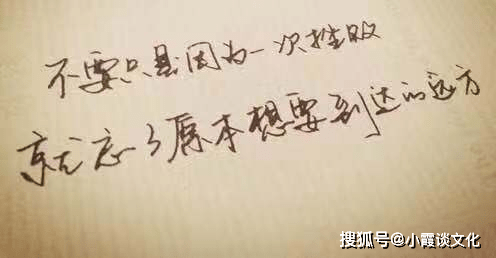 不要只是因为一次挫败
就忘了原本想要到达的远方
搜狐号@小霞谈文化